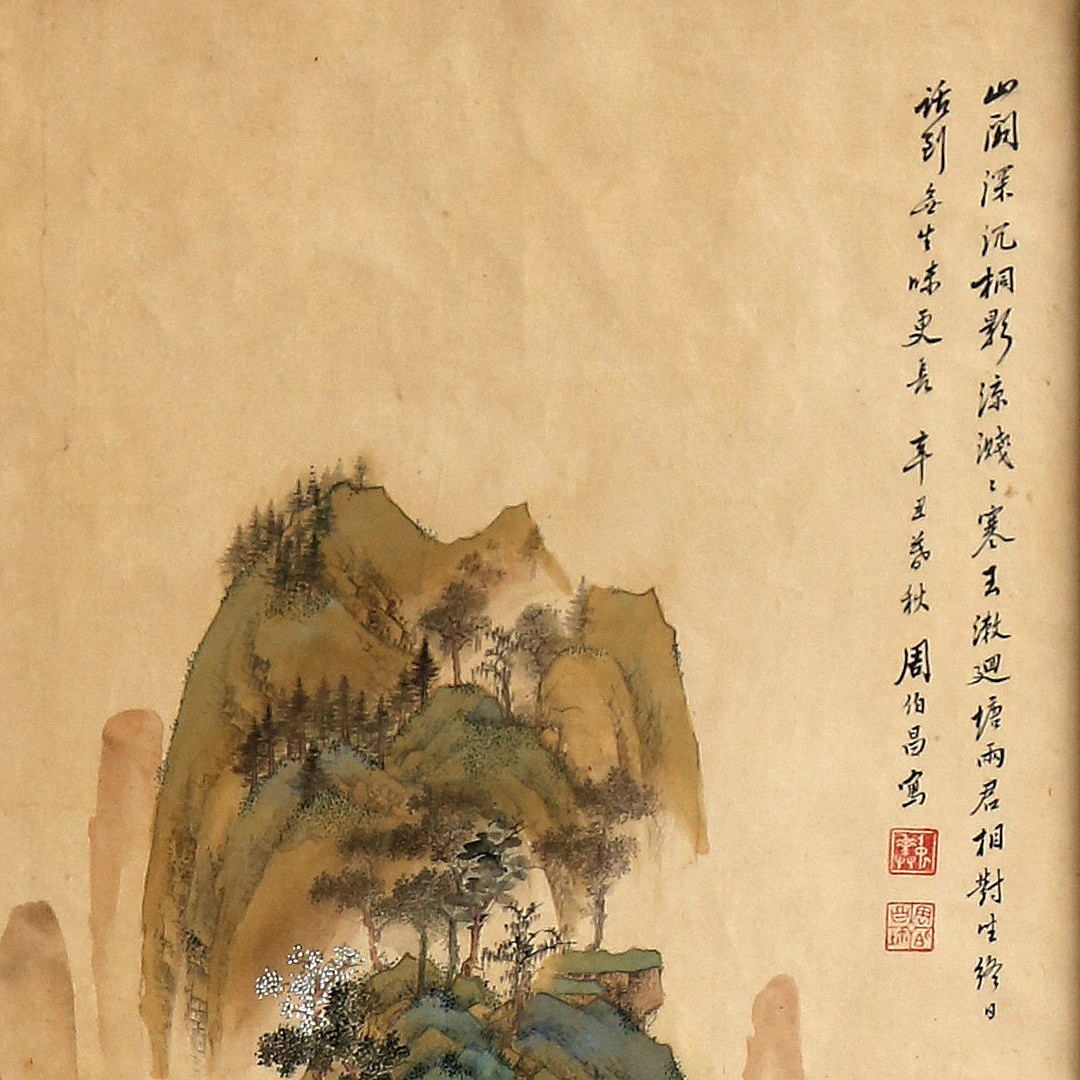 山閣深沉桐影涼濺〻寒玉漱迴塘兩君相對坐終日
話到無生味更長 辛丑暮秋 周伯昌寫